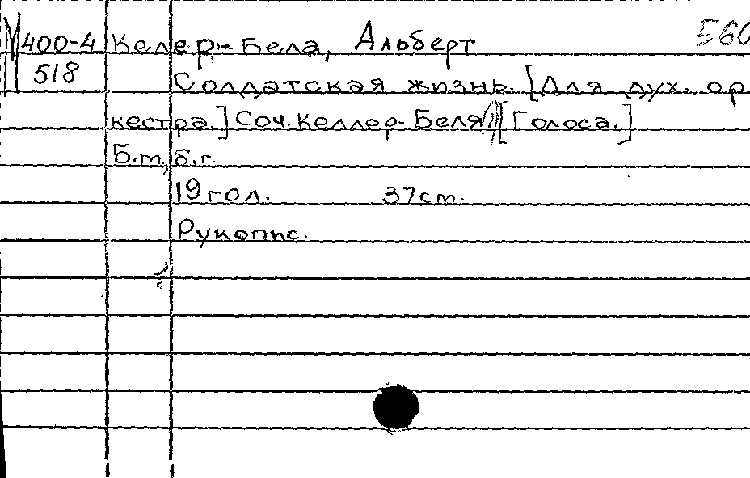 400-4 Келер-Бела, Альберт 560
518 Солдатская жизнь. [Для дух. ор
кестра.] Соч. Келлер-Беля [Голоса.]
Б.т, б.г.
19 гол. 37 cm.
Рукопис.